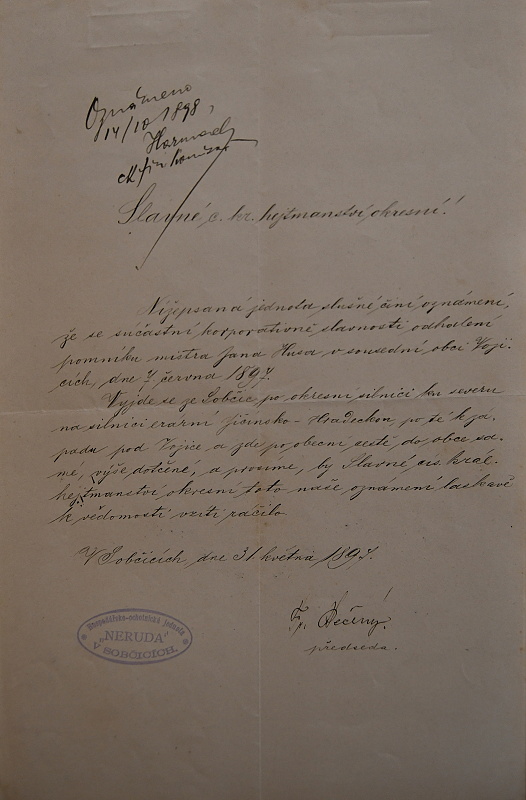 Oznámeno
14/10 1898,
Slavné c. kr. hejtmanství okresní!
Nížepsaná jednota slušně činí oznámení,
že se súčastní korporativně slavnosti odhalení
pomníku mistra Jana Husa v sousední obci Voji-
cích, dne 7. června 1897.
Vyjde se ze Sobčic po okresní silnici ku severu
na silnici erarní Jičínsko-Hradeckou, po té k zá-
padu pod Vojice a zde po obecní cestě do obce sa-
mé, výše dotčené, a prosíme, by Slavné cis. král.
hejtmanství okresní toto naše oznámení laskavě
k vědomosti vzíti ráčilo.
V Sobčicích, dne 31. května 1897.
Fr. Řečiný.
předseda.
Hospodářsko-ochotnická jednota
„NERUDA"
V SOBČICÍCH.